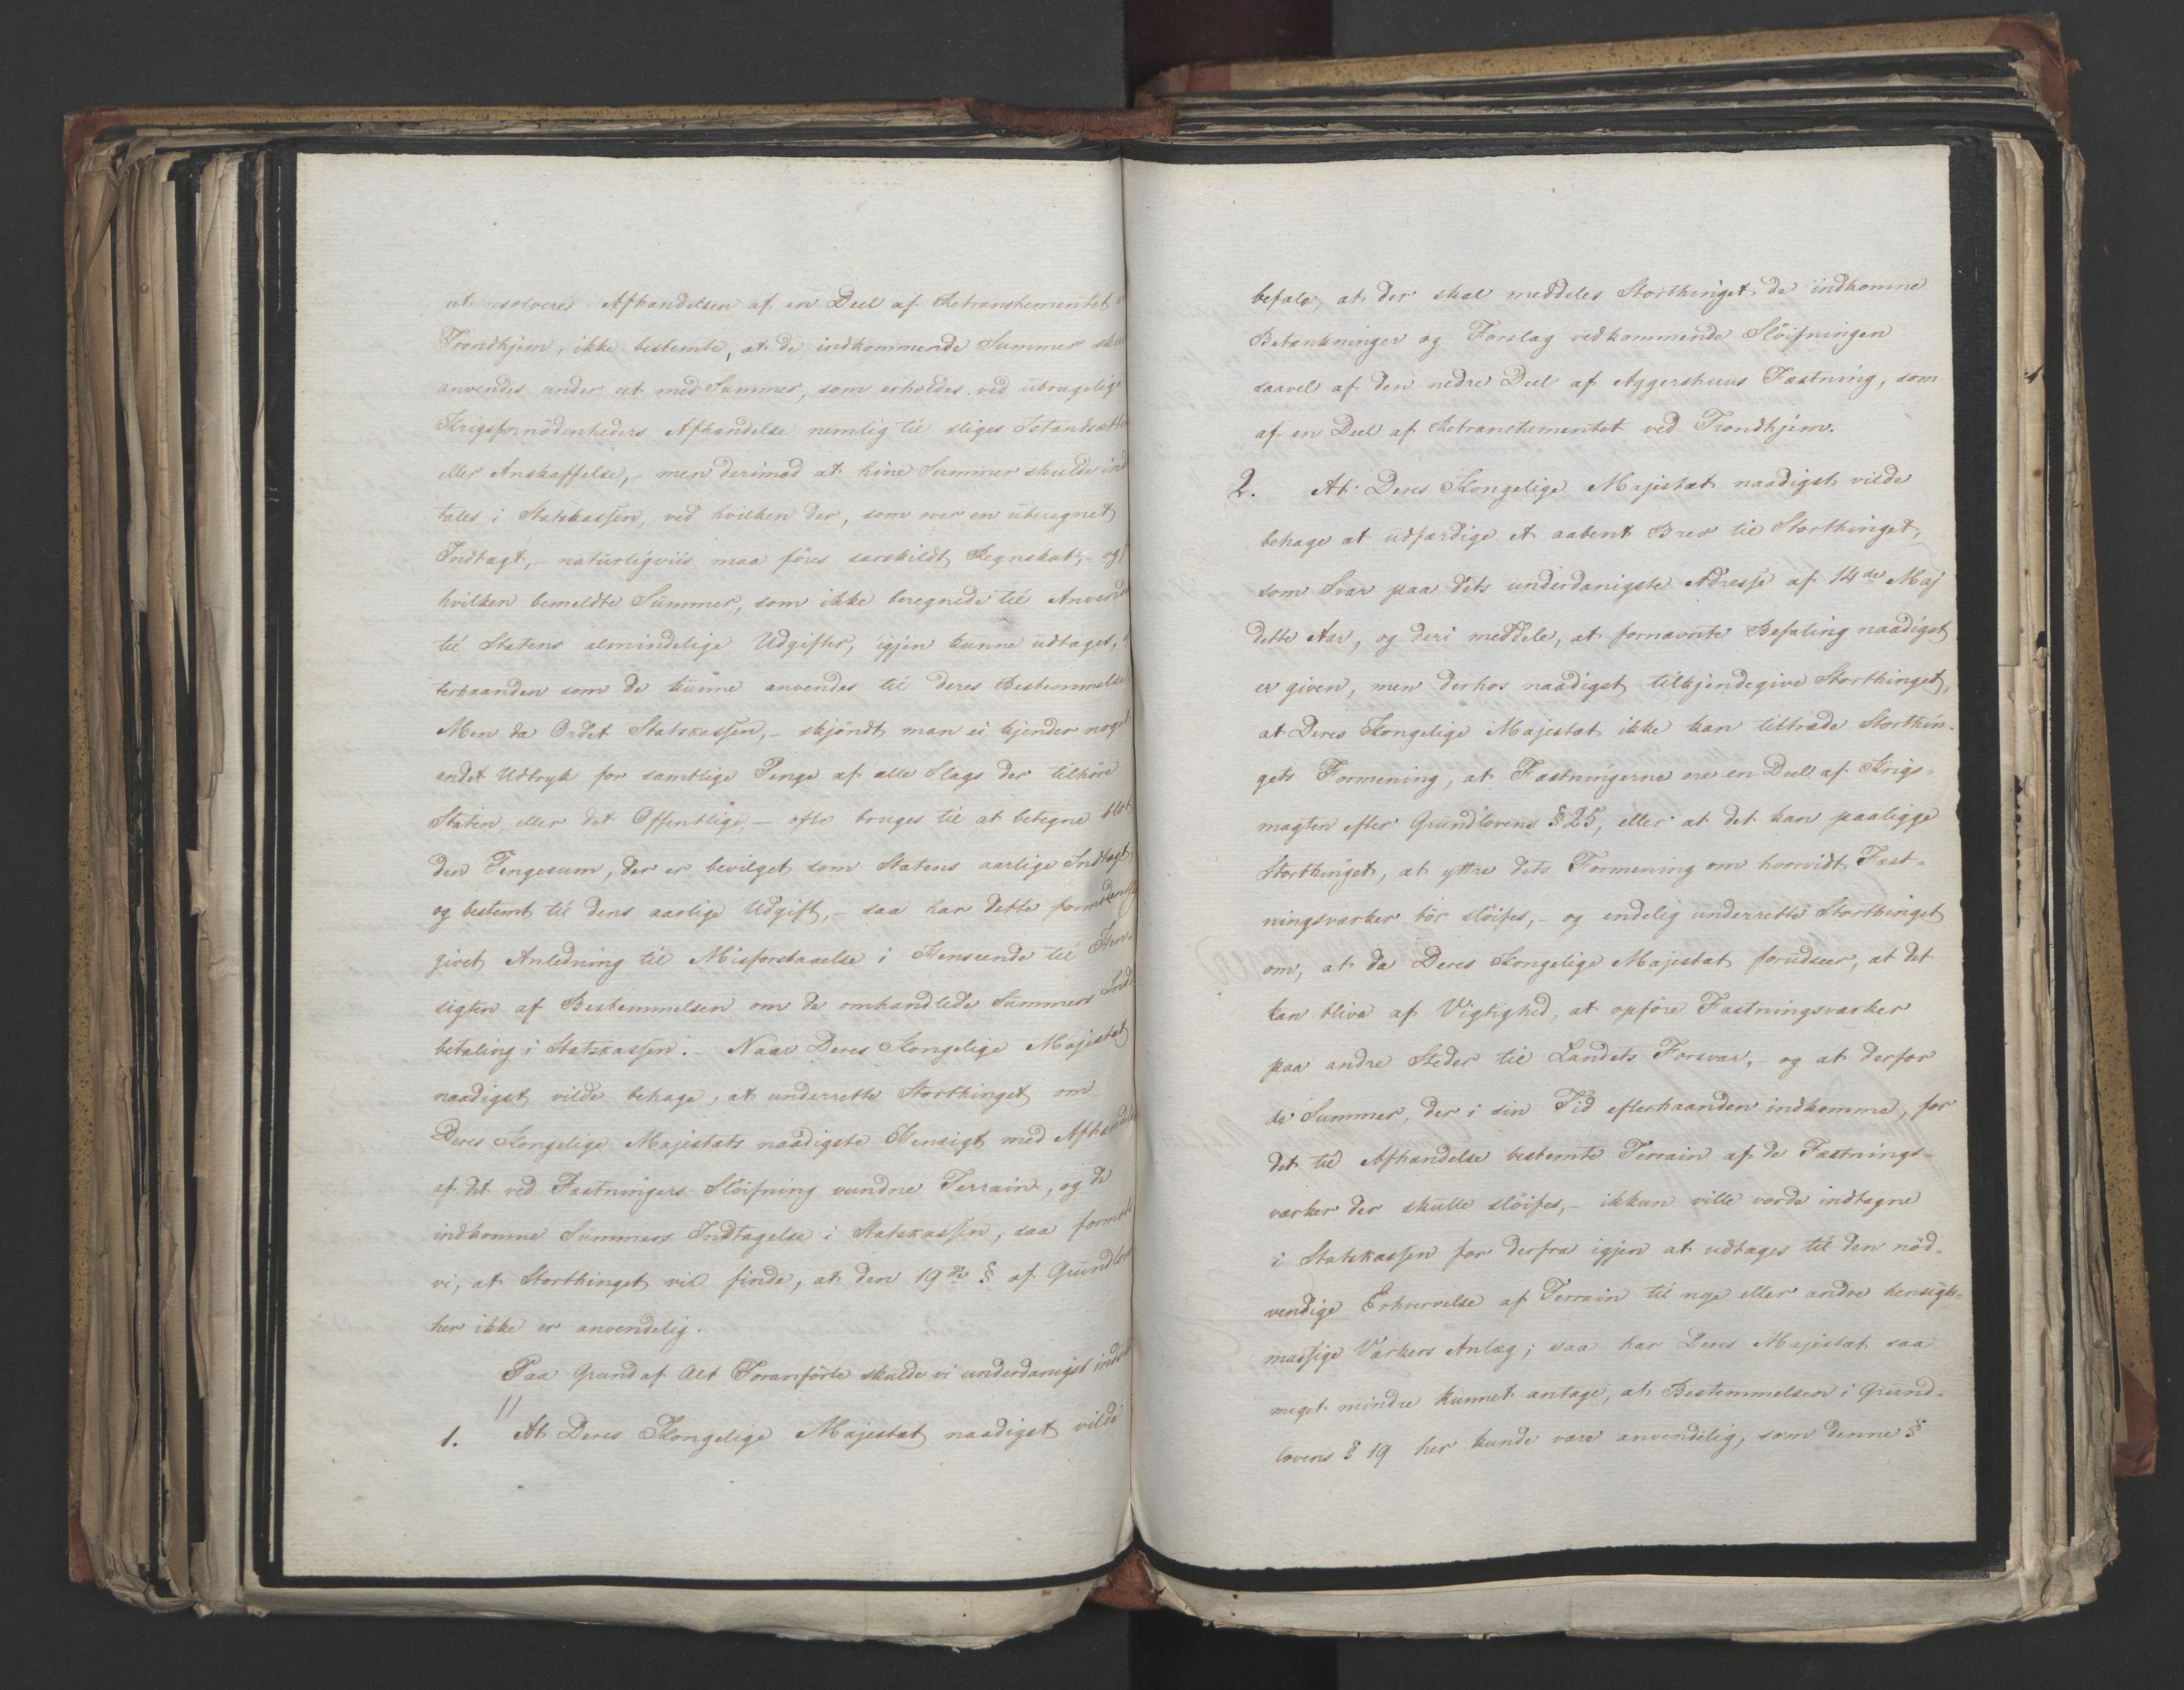 at resolveres Afhandelsen af en Deel af Retranchementet
Trondhjem, ikke bestemte, at de indkommende Summer
anvendes under eet med Summer, som erholdes ved übrugelige
Krigsfornödenheders Afhandelse nemlig til sliges
eller Anskaffelse, – men derimod at hine Summer skulde ind
tales i Statskassen, ved hvilken der, som over en überegnet
Indtægt, – natürligviis maa föres særskildt Regnskab, – og
hvilken bemeldte Summer, som ikke beregnede til
til Statens almindelige Udgifter, igjen kunne udtages,
terhaanden som de kunne anvendes til deres Bestemmelse
Men da Ordet Statskassen, – skjöndt man ei kjender noget
andet Udtryk for samtlige Penge af alle Slags der tilhöre
Staten, eller det Offentlige, – ofte bruges til at betegne blot
den Pengesum, der er bevilget som Statens aarlige Indtægt,
og bestemt til dens aarlige Udgift, – saa har dette
givet Anledning til Misforstaaelse i Henseende til Hen-
sigten af Bestemmelsen om de omhandlede Summers Ind
betaling i Statskassen. – Naar Deres Kongelige Majestæt
naadigst vilde behage, at underrette Storthinget om
Deres Kongelige Majestæts naadigste Hensigt med
af det ved Fæstningers Slöifning vundne Terrain, og de
indkomne Summers Indtagelse i Statskassen, saa
vi, at Storthinget vil finde, at den 19de § af
her ikke er anvendelig.
Paa Grund af Alt Foranförte skulde vi underdanigst
1. At Deres Kongelige Majestæt naadigst vilde
befale, at der skal meddeles Storthinget de indkomne
Betænkninger og Forslag vedkommende Slöifningen
saavel af den nedre Deel af Aggershuus Fæstning, som
af en Deel af Retranchementet ved Trondhjem.
2. At Deres Kongelige Majestæt naadigst vilde
behage at udfærdige et aabent Brev til Storthinget,
som Svar paa dets underdanigste Adresse af 14de Maj
dette Aar, og deri meddele, at fornævnte Befaling naadigst
er given, men derhos naadigst tilkjendegive Storthinget,
at Deres Kongelige Majestæt ikke kan tiltræde Storthin-
gets Formening, at Fæstningerne ere en Deel af Krigs-
magten efter Grundlovens § 25, eller at det kan paaligge
Storthinget, at yttre dets Formening om hvorvidt Fæst-
ningsværker bör slöifes, – og endelig underrette Storthinget
om, at da Deres Kongelige Majestæt forudseer, at det
kan blive af Vigtighed, at opföre Fæstningsværker
paa andre Steder til Landets Forsvar, – og at derfor
de Summer, der i sin Tid efterhaanden indkomme, for
det til Afhandelse bestemte Terrain af de Fæstnings-
værker der skulle slöifes, – ikkun ville vorde indtagne
i Statskassen for derfra igjen at udtages til den nöd-
vendige Erhvervelse af Terrain til nye eller andre hensigts-
mæssige Værkers Anlæg; saa har Deres Majestæt saa
meget mindre kunnet antage, at Bestemmelsen i Grund-
lovens § 19 her kunde være anvendelig, som denne §